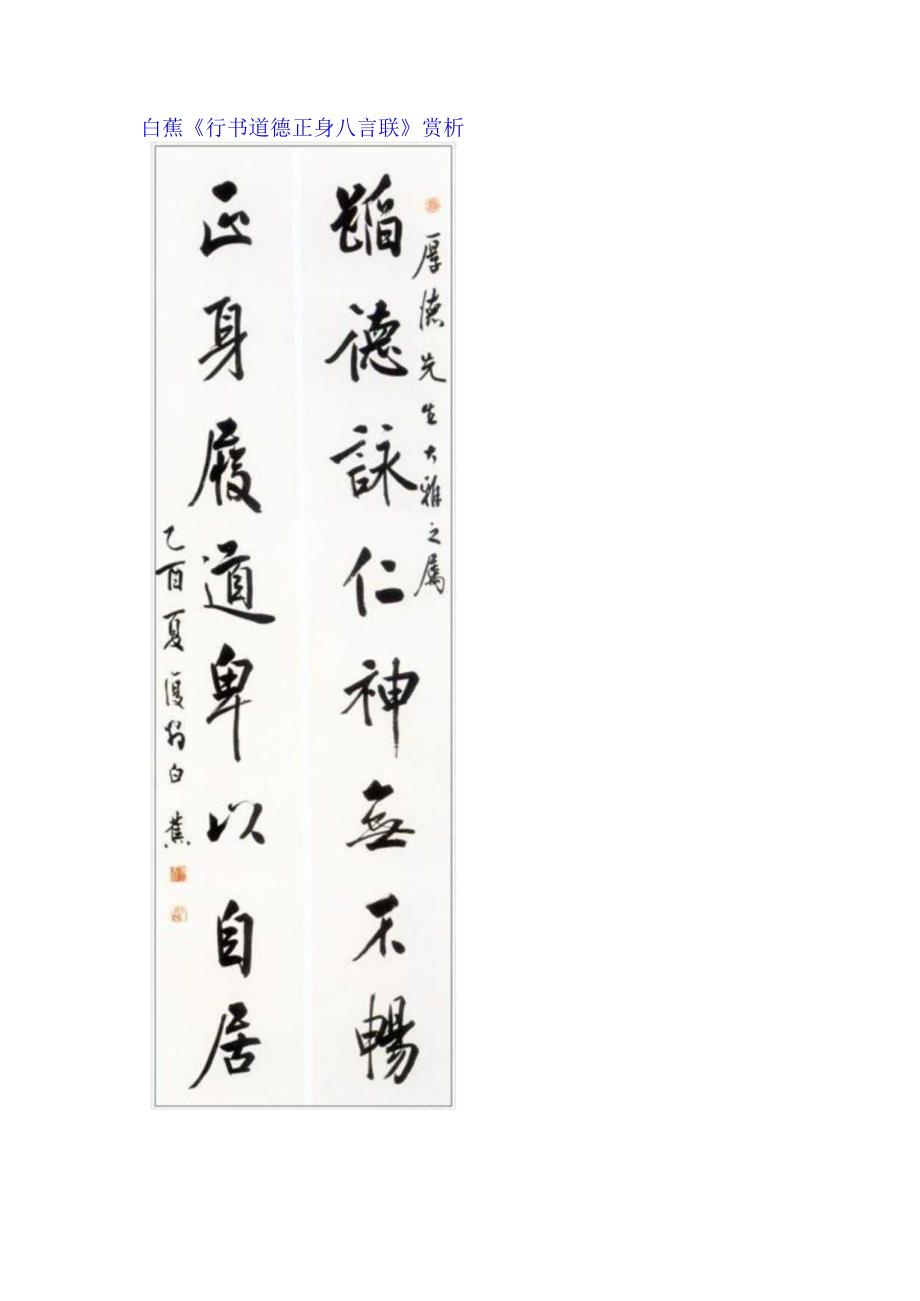 白蕉《行书道德正身八言联》赏析
厚德先生大雅之屬
蹈德詠仁神無不暢
正身履道卑以自居
乙酉夏復翁白蕉